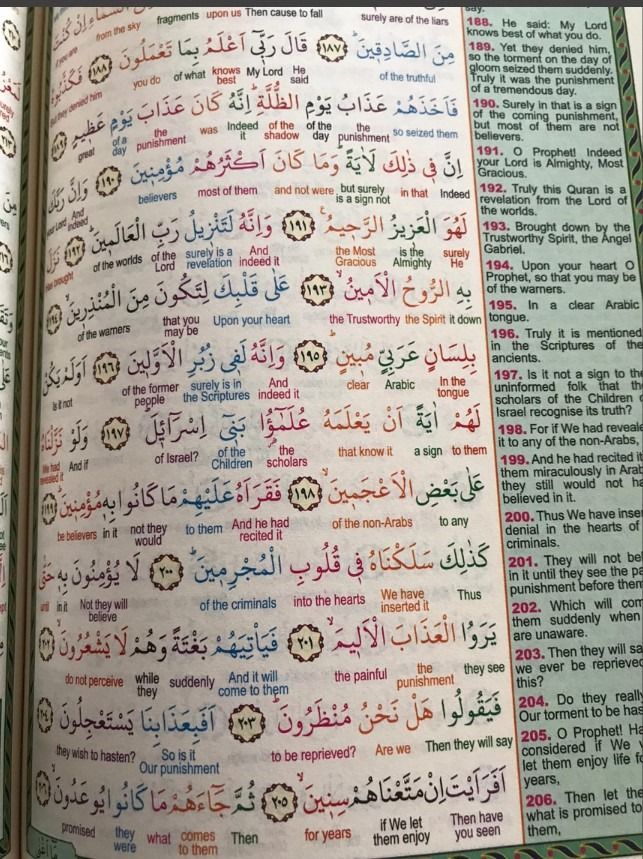 from the sky fragments upon us Then cause to fall surely are of the liars
مِنَ الصَّادِقِيْنَ ﴿١٨٧﴾ قَالَ رَبِّيْۤ اَعْلَمُ بِمَا تَعْمَلُوْنَ ﴿١٨٨﴾ فَكَذَّبُوْهُ
they denied him you do of what knows best My Lord He said of the truthful
فَاَخَذَهُمْ عَذَابُ يَوْمِ الظُّلَّةِ ؕ اِنَّهٗ كَانَ عَذَابَ يَوْمٍ عَظِيْمٍ ﴿١٨٩﴾
great of a day the punishment was Indeed it of the shadow of the day the punishment so seized them
اِنَّ فِيْ ذٰلِكَ لَاٰيَةً ؕ وَمَا كَانَ اَكْثَرُهُمْ مُّؤْمِنِيْنَ ﴿١٩٠﴾ وَاِنَّ رَبَّكَ
your Lord And indeed believers most of them and not were but surely is a sign not in that Indeed
لَهُوَ الْعَزِيْزُ الرَّحِيْمُ ﴿١٩١﴾ وَاِنَّهٗ لَتَنْزِيْلُ رَبِّ الْعَالَمِيْنَ ﴿١٩٢﴾ نَزَلَ
Has brought of the worlds of the Lord surely is a revelation And indeed it the Most Gracious is the Almighty surely He
بِهِ الرُّوْحُ الْاَمِيْنُ ﴿١٩٣﴾ عَلٰى قَلْبِكَ لِتَكُوْنَ مِنَ الْمُنْذِرِيْنَ ﴿١٩٤﴾
of the warners that you may be Upon your heart the Trustworthy the Spirit it down
بِلِسَانٍ عَرَبِيٍّ مُّبِيْنٍ ﴿١٩٥﴾ وَاِنَّهٗ لَفِيْ زُبُرِ الْاَوَّلِيْنَ ﴿١٩٦﴾ اَوَلَمْ يَكُنْ
Is it not of the former people surely is in the Scriptures And indeed it clear Arabic In the tongue
لَّهُمْ اٰيَةً اَنْ يَّعْلَمَهٗ عُلَمٰٓؤُا بَنِيْۤ اِسْرَآئِيْلَ ﴿١٩٧﴾ وَلَوْ نَزَّلْنَاهُ
We had revealed it And if of Israel? of the Children the scholars that know it a sign to them
عَلٰى بَعْضِ الْاَعْجَمِيْنَ ﴿١٩٨﴾ فَقَرَاَهٗ عَلَيْهِمْ مَّا كَانُوْا بِهٖ مُؤْمِنِيْنَ ﴿١٩٩﴾
be believers in it not they would to them And he had recited it of the non-Arabs to any
كَذٰلِكَ سَلَكْنَاهُ فِيْ قُلُوْبِ الْمُجْرِمِيْنَ ﴿٢٠٠﴾ لَا يُؤْمِنُوْنَ بِهٖ حَتّٰى
until in it Not they will believe of the criminals into the hearts We have inserted it Thus
يَرَوُا الْعَذَابَ الْاَلِيْمَ ﴿٢٠١﴾ فَيَاْتِيَهُمْ بَغْتَةً وَّهُمْ لَا يَشْعُرُوْنَ ﴿٢٠٢﴾
do not perceive while they suddenly And it will come to them the painful the punishment they see
فَيَقُوْلُوْا هَلْ نَحْنُ مُنْظَرُوْنَ ﴿٢٠٣﴾ اَفَبِعَذَابِنَا يَسْتَعْجِلُوْنَ ﴿٢٠٤﴾
they wish to hasten? So is it Our punishment to be reprieved? Are we Then they will say
اَفَرَاَيْتَ اِنْ مَّتَّعْنَاهُمْ سِنِيْنَ ﴿٢٠٥﴾ ثُمَّ جَآءَهُمْ مَّا كَانُوْا يُوْعَدُوْنَ ﴿٢٠٦﴾
promised they were what comes to them Then for years if We let them enjoy Then have you seen
say.
188. He said: My Lord
knows best of what you do.
189. Yet they denied him,
so the torment on the day of
gloom seized them suddenly.
Truly it was the punishment
of a tremendous day.
190. Surely in that is a sign
of the coming punishment,
but most of them are not
believers.
191. O Prophet! Indeed
your Lord is Almighty, Most
Gracious.
192. Truly this Quran is a
revelation from the Lord of
the worlds.
193. Brought down by the
Trustworthy Spirit, the Angel
Gabriel.
194. Upon your heart O
Prophet, so that you may be
of the warners.
195. In a clear Arabic
tongue.
196. Truly it is mentioned
in the Scriptures of the
ancients.
197. Is it not a sign to the
uninformed folk that the
scholars of the Children
Israel recognise its truth?
198. For if We had reveale
it to any of the non-Arabs,
199. And he had recited it
them miraculously in Arab
they still would not ha
believed in it.
200. Thus We have inser
denial in the hearts of
criminals.
201. They will not bel
in it until they see the pa
punishment before them
202. Which will com
them suddenly when
are unaware.
203. Then they will sa
we ever be reprieved
this?
204. Do they reall
Our torment to be has
205. O Prophet! Ha
considered if We
let them enjoy life fo
years,
206. Then let the
what is promised to
them,